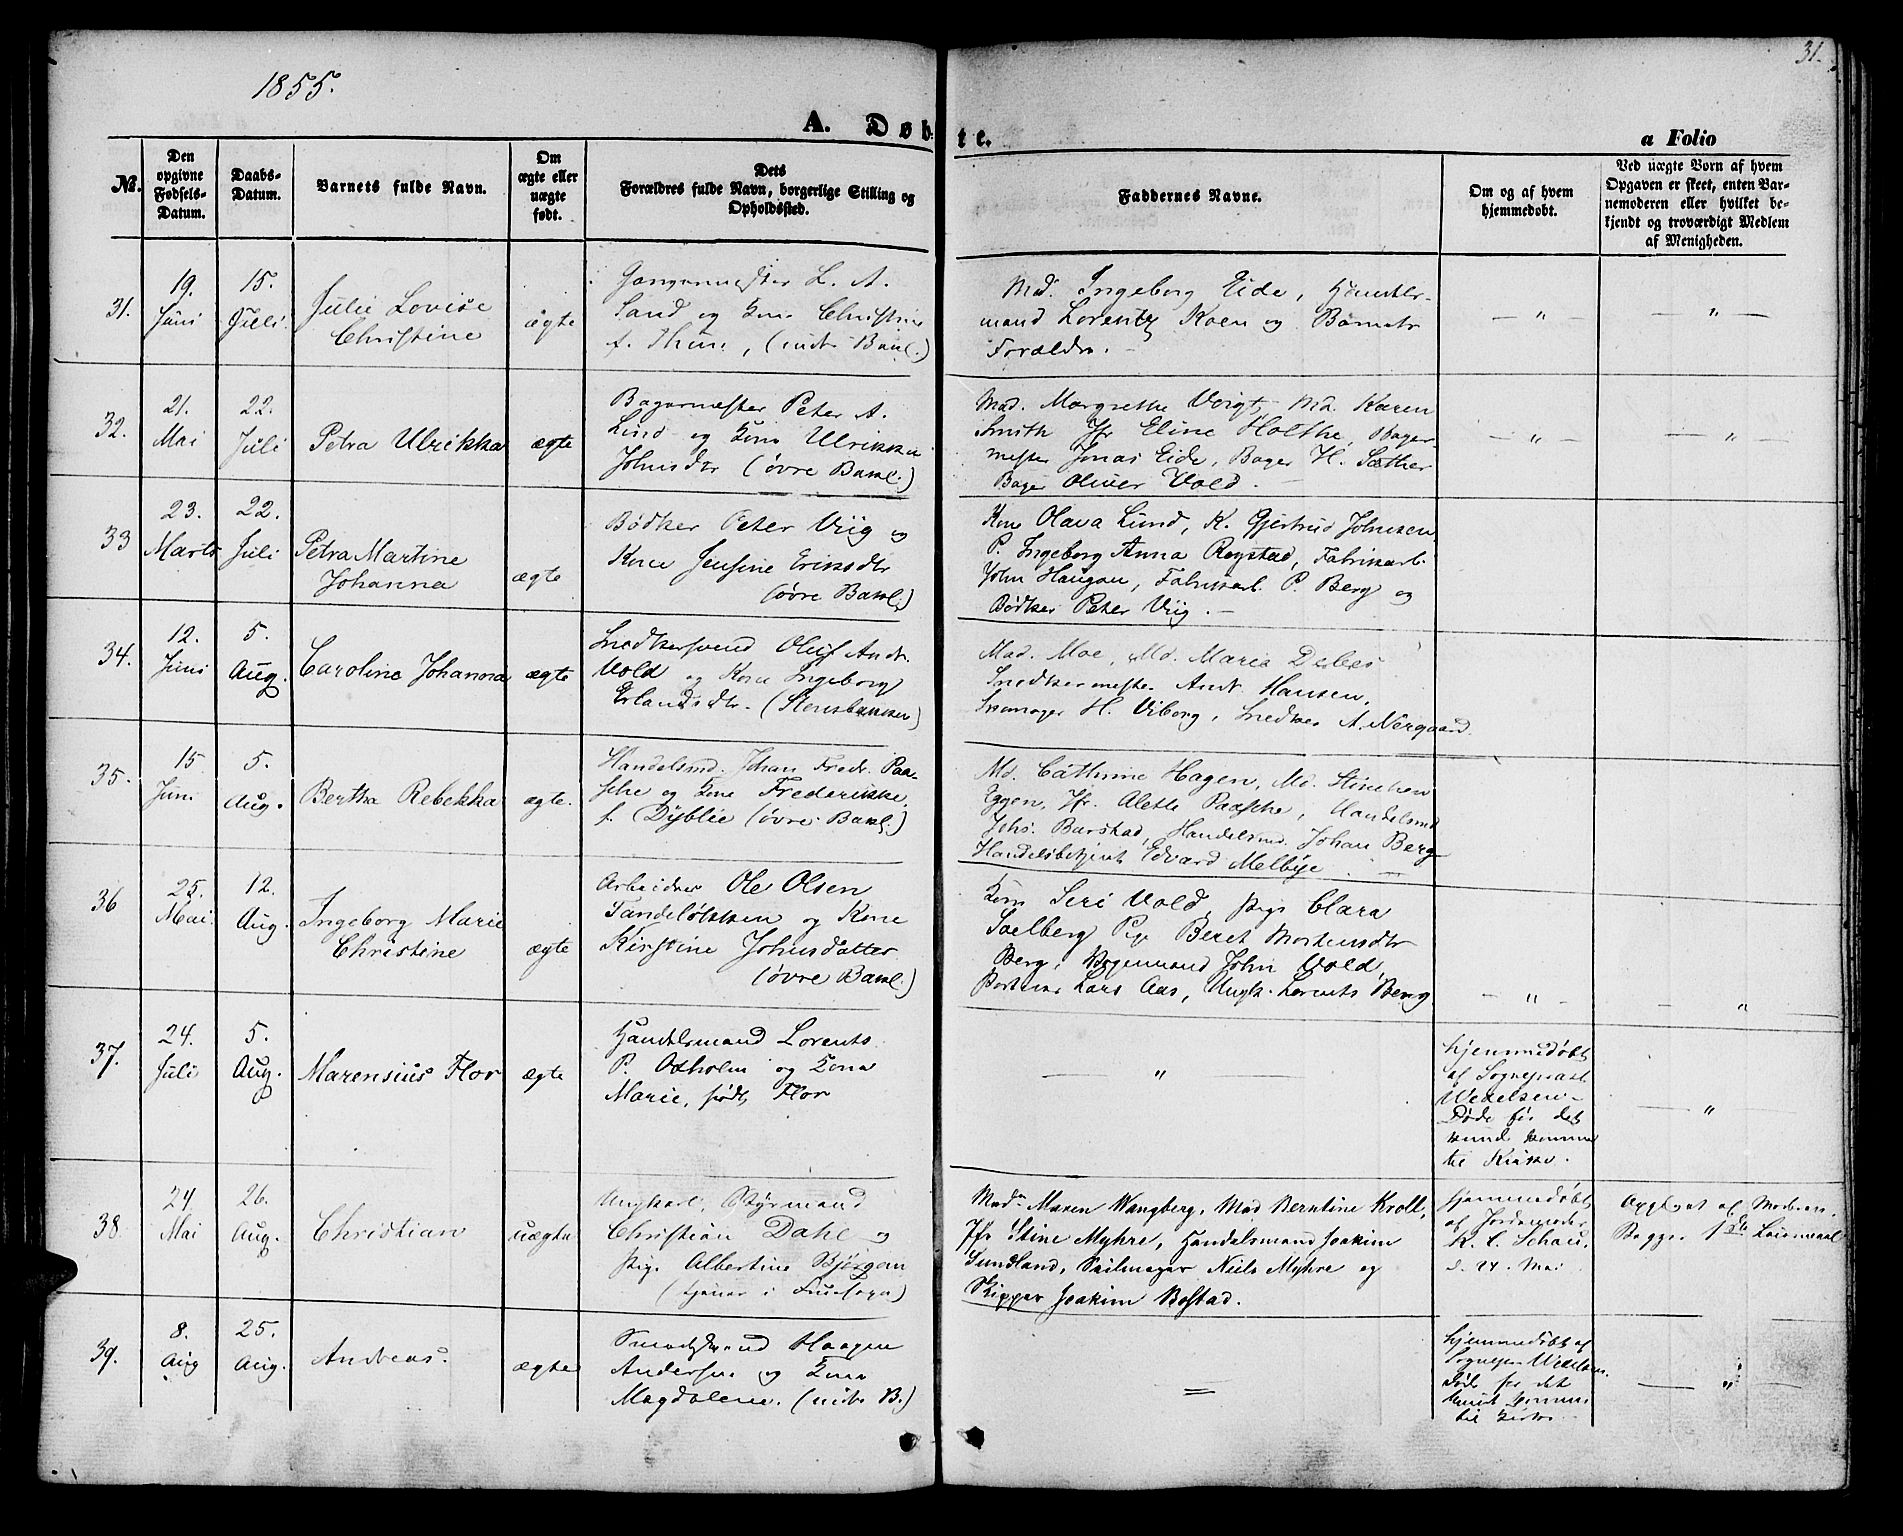 1855.
31.
A. Døbte.
a Folio
No.
Den opgivne Fødsels-Datum.
Daabs-Datum.
Barnets fulde Navn.
Om ægte eller uægte født.
Dets Forældres fulde Navn, borgerlige Stilling og Opholdssted.
Faddernes Navne.
Om og af hvem hjemmedøbt.
Ved uægte Born af hvem Opgaven er skeet, enten Barnemoderen eller hvilket bekjendt og troværdigt Medlem af Menigheden.
31.
19.
Juni
15.
Juli
Julie Lovise
Christine
ægte
L. A.
Sand og Kone Christine
f. (nedre Bakl.)
Md. Ingeborg Eide, Handels-
mand Lorentz Koen og Barnets
Forældre.
— " —
— " —
32.
21.
Mai
22.
Juli
Petra Ulrikka
ægte
Bagermester Peter A.
Lind og Kone Ulrikka
Johnsdtr (øvre Bakl.)
Mad. Margrethe Voigt, Md. Karen
Smith Jfr Eline Holthe, Bager-
mester Jonas Eide, Bager H. Sæther
Bager Oliver Vold.
— " —
— " —
33
23.
Marts
22.
Juli
Petra Martine
Johanna
ægte
Bødker Peter Viig og
Kone Jensine Eriksdtr
(øvre Bakl.)
Kone Olava Lund, K. Gjertrud Johnsen
P. Ingeborg Anna Røystad, Fabrikarb.
John Haugan, Fabrikarb. P. Berg og
Bødker Peter Viig. —
34.
12.
Juni
5.
Aug.
Caroline Johanna
ægte
Snedkersvend Oluf Andr.
Vold og Kone Ingeborg
Erlandsdtr. (Stensbakken)
Mad. Moe, Md. Maria
Snedkermester Andr. Hansen,
H. Viborg, Snedker A. Nergaard
35.
15
Juni
5.
Aug.
Bertha Rebekka
ægte.
Handelsmd. Johan Fredr. Paa-
sche og Kone Frederikke,
f. Dyblie (øvre Bakl.)
Md. Cathrine Hagen, Md. Stinchen
Eggen, Jfr. Alette Paasche, Handelsmd
Johs. Barstad, Handelsmd. Johan Berg
Handelsbetjent Edvard Melbye. —
36
25.
Mai.
12.
Aug.
Ingeborg Marie
Christine
ægte
Arbeider Ole Olsen
Tandeløkken og Kone
Kirstine Johnsdatter
(øvre Bakl.)
Kone Seri Vold, Pige Clara
Soelberg Pige Beret Mortensdtr
Berg, Vognmand John Vold,
Lars Aas, Ungk. Lorents Berg.
— " —
— "
37.
24.
Juli
5.
Aug.
Marensius Flor
ægte
Handelsmand Lorents
P. Oxholm og Kone
Marie, født Flor
— " —
hjemmedøbt
af Sognepræst
Wexelsen —
Døde før det
kunde komme
til Kirke.
— " —
38.
24
Mai
26.
Aug.
Christian
uægte
Ungkarl, Styrmand
Christian Dahl og
Pige Albertine Bjørgan
(tjener i Fruesogn)
Mad. Maren Wangberg, Mad Berntine Kroll,
Jfr Stine Myhre, Handelsmand Joakim
Sundland, Seilmager Niels Myhre og
Skipper Joakim Bostad.
Hjemmedøbt
af Jordemoder
K. C. Schau,
d. 24. Mai
Opgivet af Moderen.
Begges 1ste Leiermaal
39.
8.
Aug
25.
Aug.
Andreas.
ægte
Smedsvend Haagen
Andersen og Kone
Magdalene. (nedre B.)
=
hjemmedøbt af
Sognepr. Wexelsen
Døde før det
kunde komme
til Kirke.
— " —